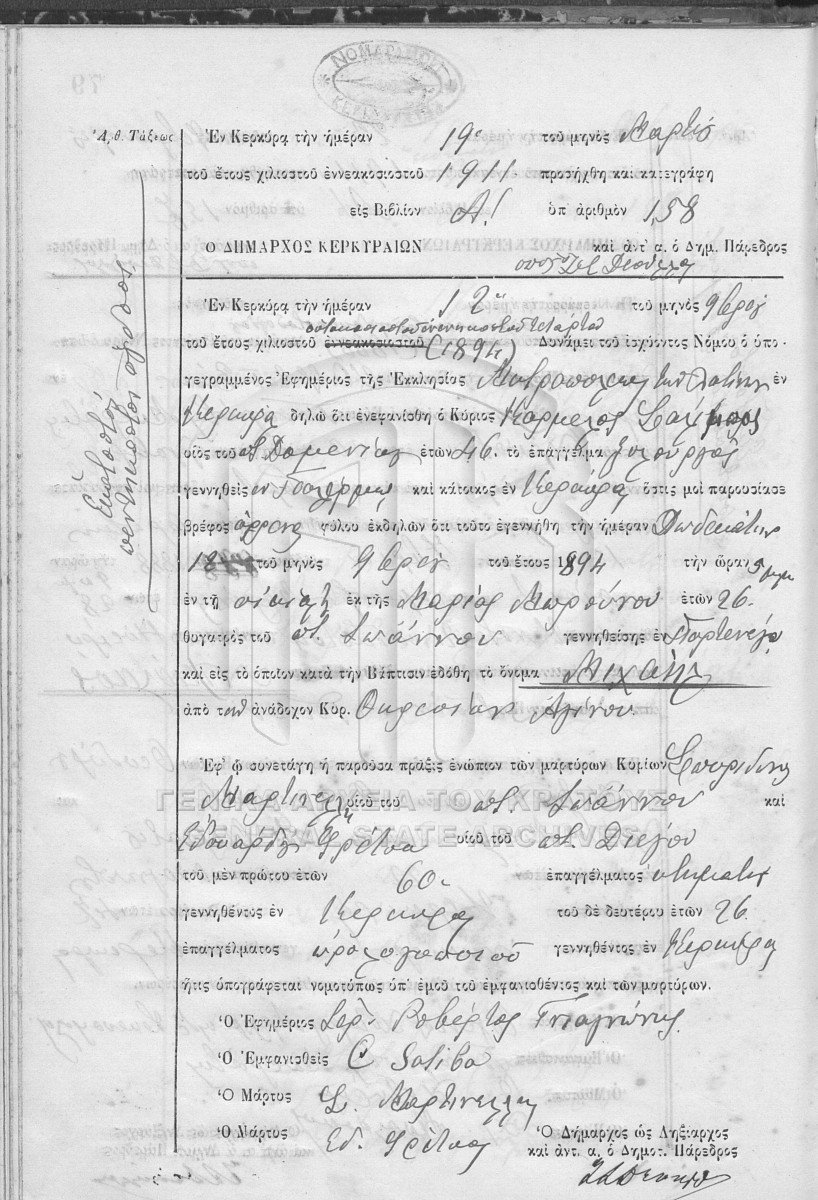 ΝΟΜΑΡΧΙΑ
ΚΕΡΚΥΡΑΣ
79
Ἀριθ. Τάξεως
Ἑκατοστὸν πεντηκοστὸν ὄγδοον
Ἐν Κερκύρᾳ τὴν ἡμέραν 19ην τοῦ μηνὸς Μαρτίου
τοῦ ἔτους χιλιοστοῦ ἐννεακοσιοστοῦ 1911 προσήχθη καὶ κατεγράφη
εἰς Βιβλίον Α! ὑπ' ἀριθμὸν 158
Ο ΔΗΜΑΡΧΟΣ ΚΕΡΚΥΡΑΙΩΝ καὶ ἀντ' α. ὁ Δημ. Πάρεδρος
Ἐν Κερκύρᾳ τὴν ἡμέραν 12 τοῦ μηνὸς 9βρίου
ὀκτακοσιοστοῦ ἐνενηκοστοῦ τετάρτου
τοῦ ἔτους χιλιοστοῦ ἐννεακοσιοστοῦ (1894) Δυνάμει τοῦ ἰσχύοντος Νόμου ὁ ὑπο-
γεγραμμένος Ἐφημέριος τῆς Ἐκκλησίας Μητροπόλεως τῶν Λατίνων ἐν
Κερκύρᾳ δηλῶ ὅτι ἐνεφανίσθη ὁ Κύριος Κάρμελος
υἱὸς τοῦ ποτ. Δομενίκου ἐτῶν 46. τὸ ἐπάγγελμα ξυλουργὸς
γεννηθεὶς ἐν καὶ κάτοικος ἐν Κερκύρᾳ ὅστις μοὶ παρουσίασε
βρέφος ἄρρενος φύλου ἐκδηλῶν ὅτι τοῦτο ἐγεννήθη τὴν ἡμέραν Δωδεκάτην
τοῦ μηνὸς 9βρίου τοῦ ἔτους 1894 τὴν ὥραν
ἐν τῇ οἰκίᾳ ἐκ τῆς Μαρίας ἐτῶν 26.
θυγατρὸς τοῦ ποτ. Ἰωάννου γεννηθείσης ἐν
καὶ εἰς τὸ ὁποῖον κατὰ τὴν Βάπτισιν ἐδόθη τὸ ὄνομα Μιχαὴλ
ἀπὸ τὸν ἀνάδοχον Κυρ.
Ἐφ' ᾧ συνετάγη ἡ παροῦσα πρᾶξις ἐνώπιον τῶν μαρτύρων Κυρίων Σπυρίδωνος
Μαρτινέλλη υἱοῦ τοῦ ποτ. Ἰωάννου καὶ
ΓΕΝΙΚΑ ΑΡΧΕΙΑ ΤΟΥ ΚΡΑΤΟΥΣ
GENERAL STATE ARCHIVES
Ἐδουάρδου υἱοῦ τοῦ ποτ. Διέγου
τοῦ μὲν πρώτου ἐτῶν 60 ἐπαγγέλματος κτηματίου
γεννηθέντος ἐν Κερκύρᾳ τοῦ δὲ δευτέρου ἐτῶν 26
ἐπαγγέλματος ὡρολογοποιοῦ γεννηθέντος ἐν Κερκύρᾳ
ἥτις ὑπογράφεται νομοτύπως ὑπ' ἐμοῦ τοῦ ἐμφανισθέντος καὶ τῶν μαρτύρων.
Ὁ Ἐφημέριος Ροβέρτος
Ὁ Ἐμφανισθεὶς C Saliba
Ὁ Μάρτυς Σ. Μαρτινέλλης
Ὁ Μάρτυς Ἐδ.
Ὁ Δήμαρχος ὡς Ληξίαρχος
καὶ ἀντ. α. ὁ Δημοτ. Πάρεδρος